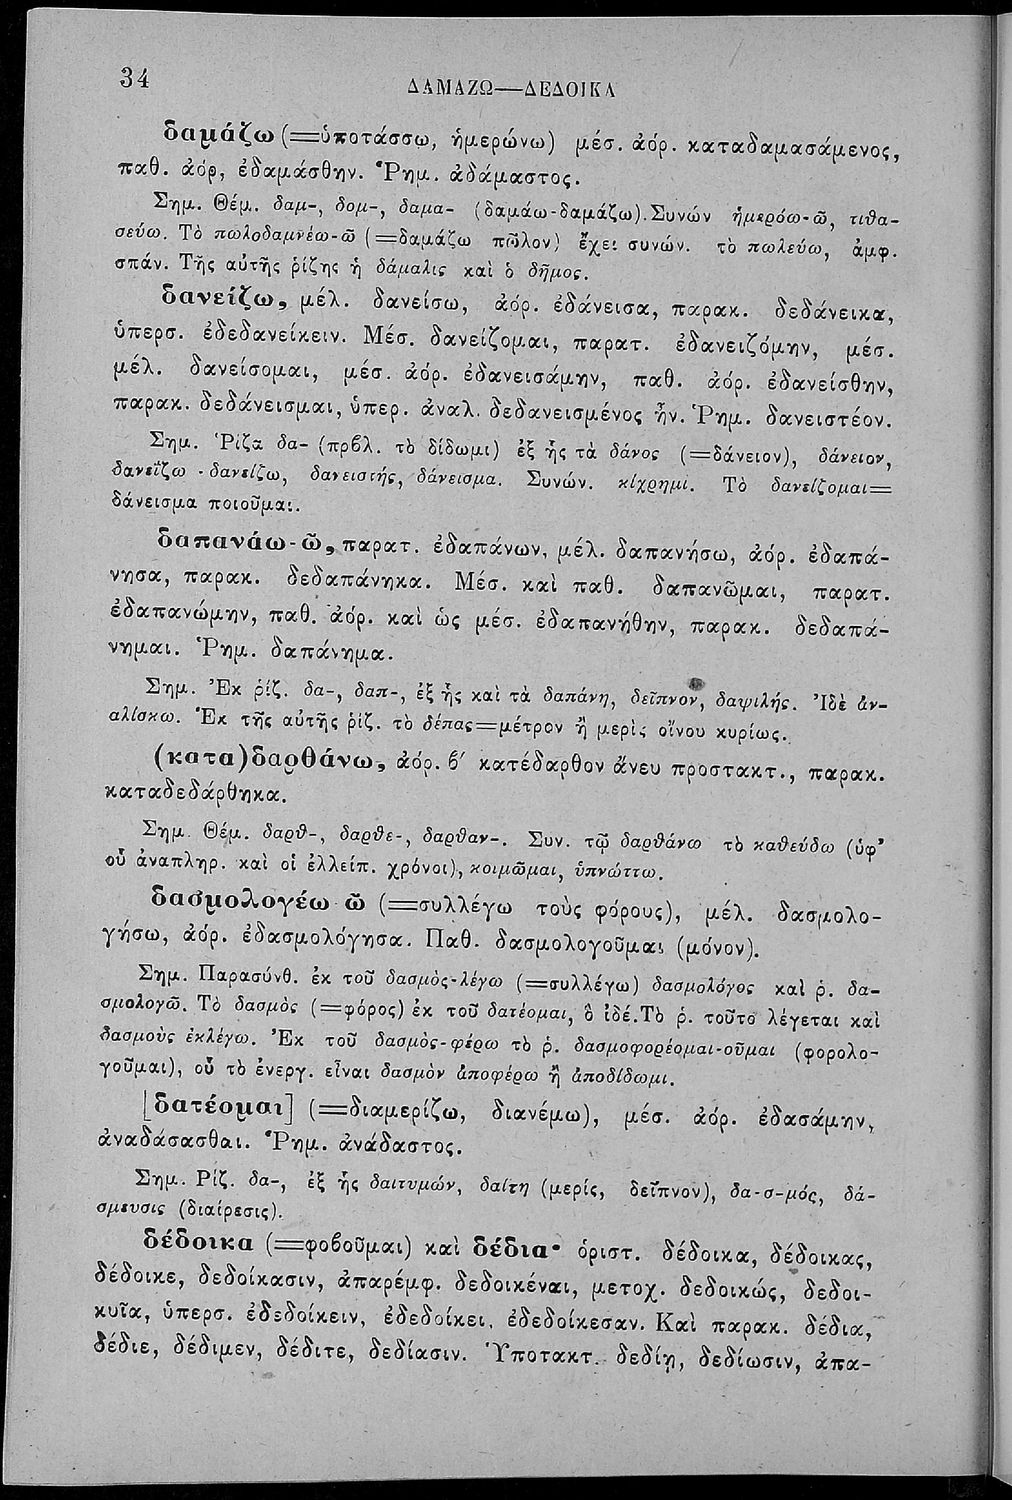 34
ΔΑΜΑΖΩ—ΔΕΔΟΙΚΑ
δαμάζω (=ὑποτάσσω, ἡμερώνω) μέσ. ἀόρ. καταδαμασάμενος,
παθ. ἀόρ, ἐδαμάσθην. Ῥημ. ἀδάμαστος.
Σημ. Θέμ. δαμ-, δομ-, δαμα- (δαμάω-δαμάζω). Συνών ἡμερόω-ῶ, τιθα-
σεύω. Τὸ πωλοδαμνέω-ῶ (=δαμάζω πῶλον) ἔχει συνών. τὸ πωλεύω, ἀμφ.
σπάν. Τῆς αὐτῆς ῥίζης ἡ δάμαλις καὶ ὁ δῆμος.
δανείζω, μέλ. δανείσω, ἀόρ. ἐδάνεισα, παρακ. δεδάνεικα,
ὑπερσ. ἐδεδανείκειν. Μέσ. δανείζομαι, παρατ. ἐδανειζόμην, μέσ.
μέλ. δανείσομαι, μέσ. ἀόρ. ἐδανεισάμην, παθ. ἀόρ. ἐδανείσθην,
παρακ. δεδάνεισμαι, ὑπερ. ἀναλ. δεδανεισμένος ἦν. Ῥημ. δανειστέον.
Σημ. Ῥίζα δα- (πρβλ. τὸ δίδωμι) ἐξ ἧς τὰ δάνος (=δάνειον), δάνειον,
δανεΐζω - δανείζω, δανειστής, δάνεισμα. Συνών. κίχρημι. Τὸ δανείζομαι=
δάνεισμα ποιοῦμαι.
δαπανάω-ῶ, παρατ. ἐδαπάνων, μέλ. δαπανήσω, ἀόρ. ἐδαπά-
νησα, παρακ. δεδαπάνηκα. Μέσ. καὶ παθ. δαπανῶμαι, παρατ.
ἐδαπανώμην, παθ. ἀόρ. καὶ ὡς μέσ. ἐδαπανήθην, παρακ. δεδαπά-
νημαι. Ῥημ. δαπάνημα.
Σημ. Ἐκ ῥίζ. δα-, δαπ-, ἐξ ἧς καὶ τὰ δαπάνη, δεῖπνον, δαψιλής. Ἰδὲ ἀν-
αλίσκω. Ἐκ τῆς αὐτῆς ῥίζ. τὸ δέπας=μέτρον ἢ μερὶς οἴνου κυρίως.
(κατα)δαρθάνω, ἀόρ. β′ κατέδαρθον ἄνευ προστακτ., παρακ.
καταδεδάρθηκα.
Σημ. Θέμ. δαρθ-, δαρθε-, δαρθαν-. Συν. τῷ δαρθάνω τὸ καθεύδω (ὑφ’
οὗ ἀναπληρ. καὶ οἱ ἐλλείπ. χρόνοι), κοιμῶμαι, ὑπνώττω.
δασμολογέω ῶ (=συλλέγω τοὺς φόρους), μέλ. δασμολο-
γήσω, ἀόρ. ἐδασμολόγησα. Παθ. δασμολογοῦμαι (μόνον).
Σημ. Παρασύνθ. ἐκ τοῦ δασμὸς-λέγω (=συλλέγω) δασμολόγος καὶ ῥ. δα-
σμολογῶ. Τὸ δασμὸς (=φόρος) ἐκ τοῦ δατέομαι, ὃ ἰδέ. Τὸ ῥ. τοῦτο λέγεται καὶ
δασμοὺς ἐκλέγω. Ἐκ τοῦ δασμὸς-φέρω τὸ ῥ. δασμοφορέομαι-οῦμαι (φορολο-
γοῦμαι), οὗ τὸ ἐνεργ. εἶναι δασμὸν ἀποφέρω ἢ ἀποδίδωμι.
[δατέομαι] (=διαμερίζω, διανέμω), μέσ. ἀόρ. ἐδασάμην,
ἀναδάσασθαι. Ῥημ. ἀνάδαστος.
Σημ. Ρίζ. δα-, ἐξ ἧς δαιτυμών, δαίτη (μερίς, δεῖπνον), δα-σ-μός, δά-
σμευσις (διαίρεσις).
δέδοικα (=φοβοῦμαι) καὶ δέδια· ὁριστ. δέδοικα, δέδοικας,
δέδοικε, δεδοίκασιν, ἀπαρέμφ. δεδοικέναι, μετοχ. δεδοικώς, δεδοι-
κυῖα, ὑπερσ. ἐδεδοίκειν, ἐδεδοίκει, ἐδεδοίκεσαν. Καὶ παρακ. δέδια,
δέδιε, δέδιμεν, δέδιτε, δεδίασιν. Ὑποτακτ. δεδίῃ, δεδίωσιν, ἀπα-